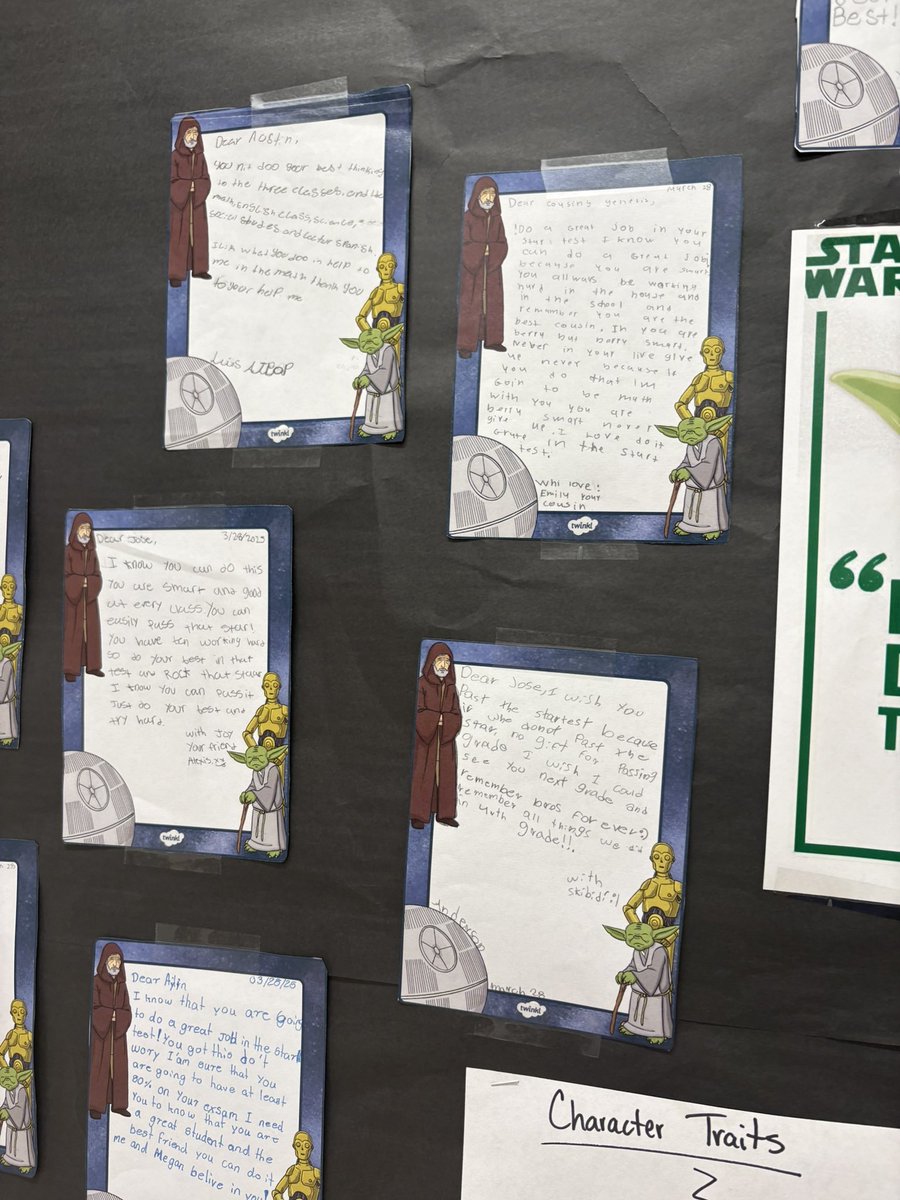 Best!
Dear Austin,
you nit doo your best thinking
in the three classes, and the
math, English class, science,
social studes and
I lik what you doo in help to
me in the math thank you
to your help me
Luis
twinkl
March 28
Dear cousing genesis,
!Do a great Job in your
Start test I know you
can do a Great Job!
because you are smart
You allways be working
hurd in the house and
in the school and
remember you are the
best cousin. In you are
berry but borry smart.
Never in your live give
ue never because if
you do that Im
Goin to be math
with you you are
berry smart never
give ue. I Love do it
Grate in the Start
test.
Whi love:
Emily Your
cousin
twinkl
STA
WAR
“
D
T
Dear Jose, 3/28/2025
I know you can do this
You are smart and good
at every class. You can
easily pass that star!
You have ben working hard
so do your best in that
test and Rock that staar
I know you can pass it
Just do your test and
try hard.
with Joy
Your friend
Alexis
twinkl
Dear Jose, I wish you
Past the startest because
if whe donot Past the
Star, no gift for Passing
grade I wish I could
see you next grade and
remember bros for ever:)
remember all things we did
in 4uth grade!!.
with
skibidi:)
Anderson
march 28
twinkl
Dear Ailin 03/28/25
I know that you are going
to do a great job in the Start
test! You got this do't
wory I'am sure that you
are going to have at least
80% on your exsam I need
you to know that you are
a great student and the
best friend you can do it
me and Megan belive in you!
Character Traits